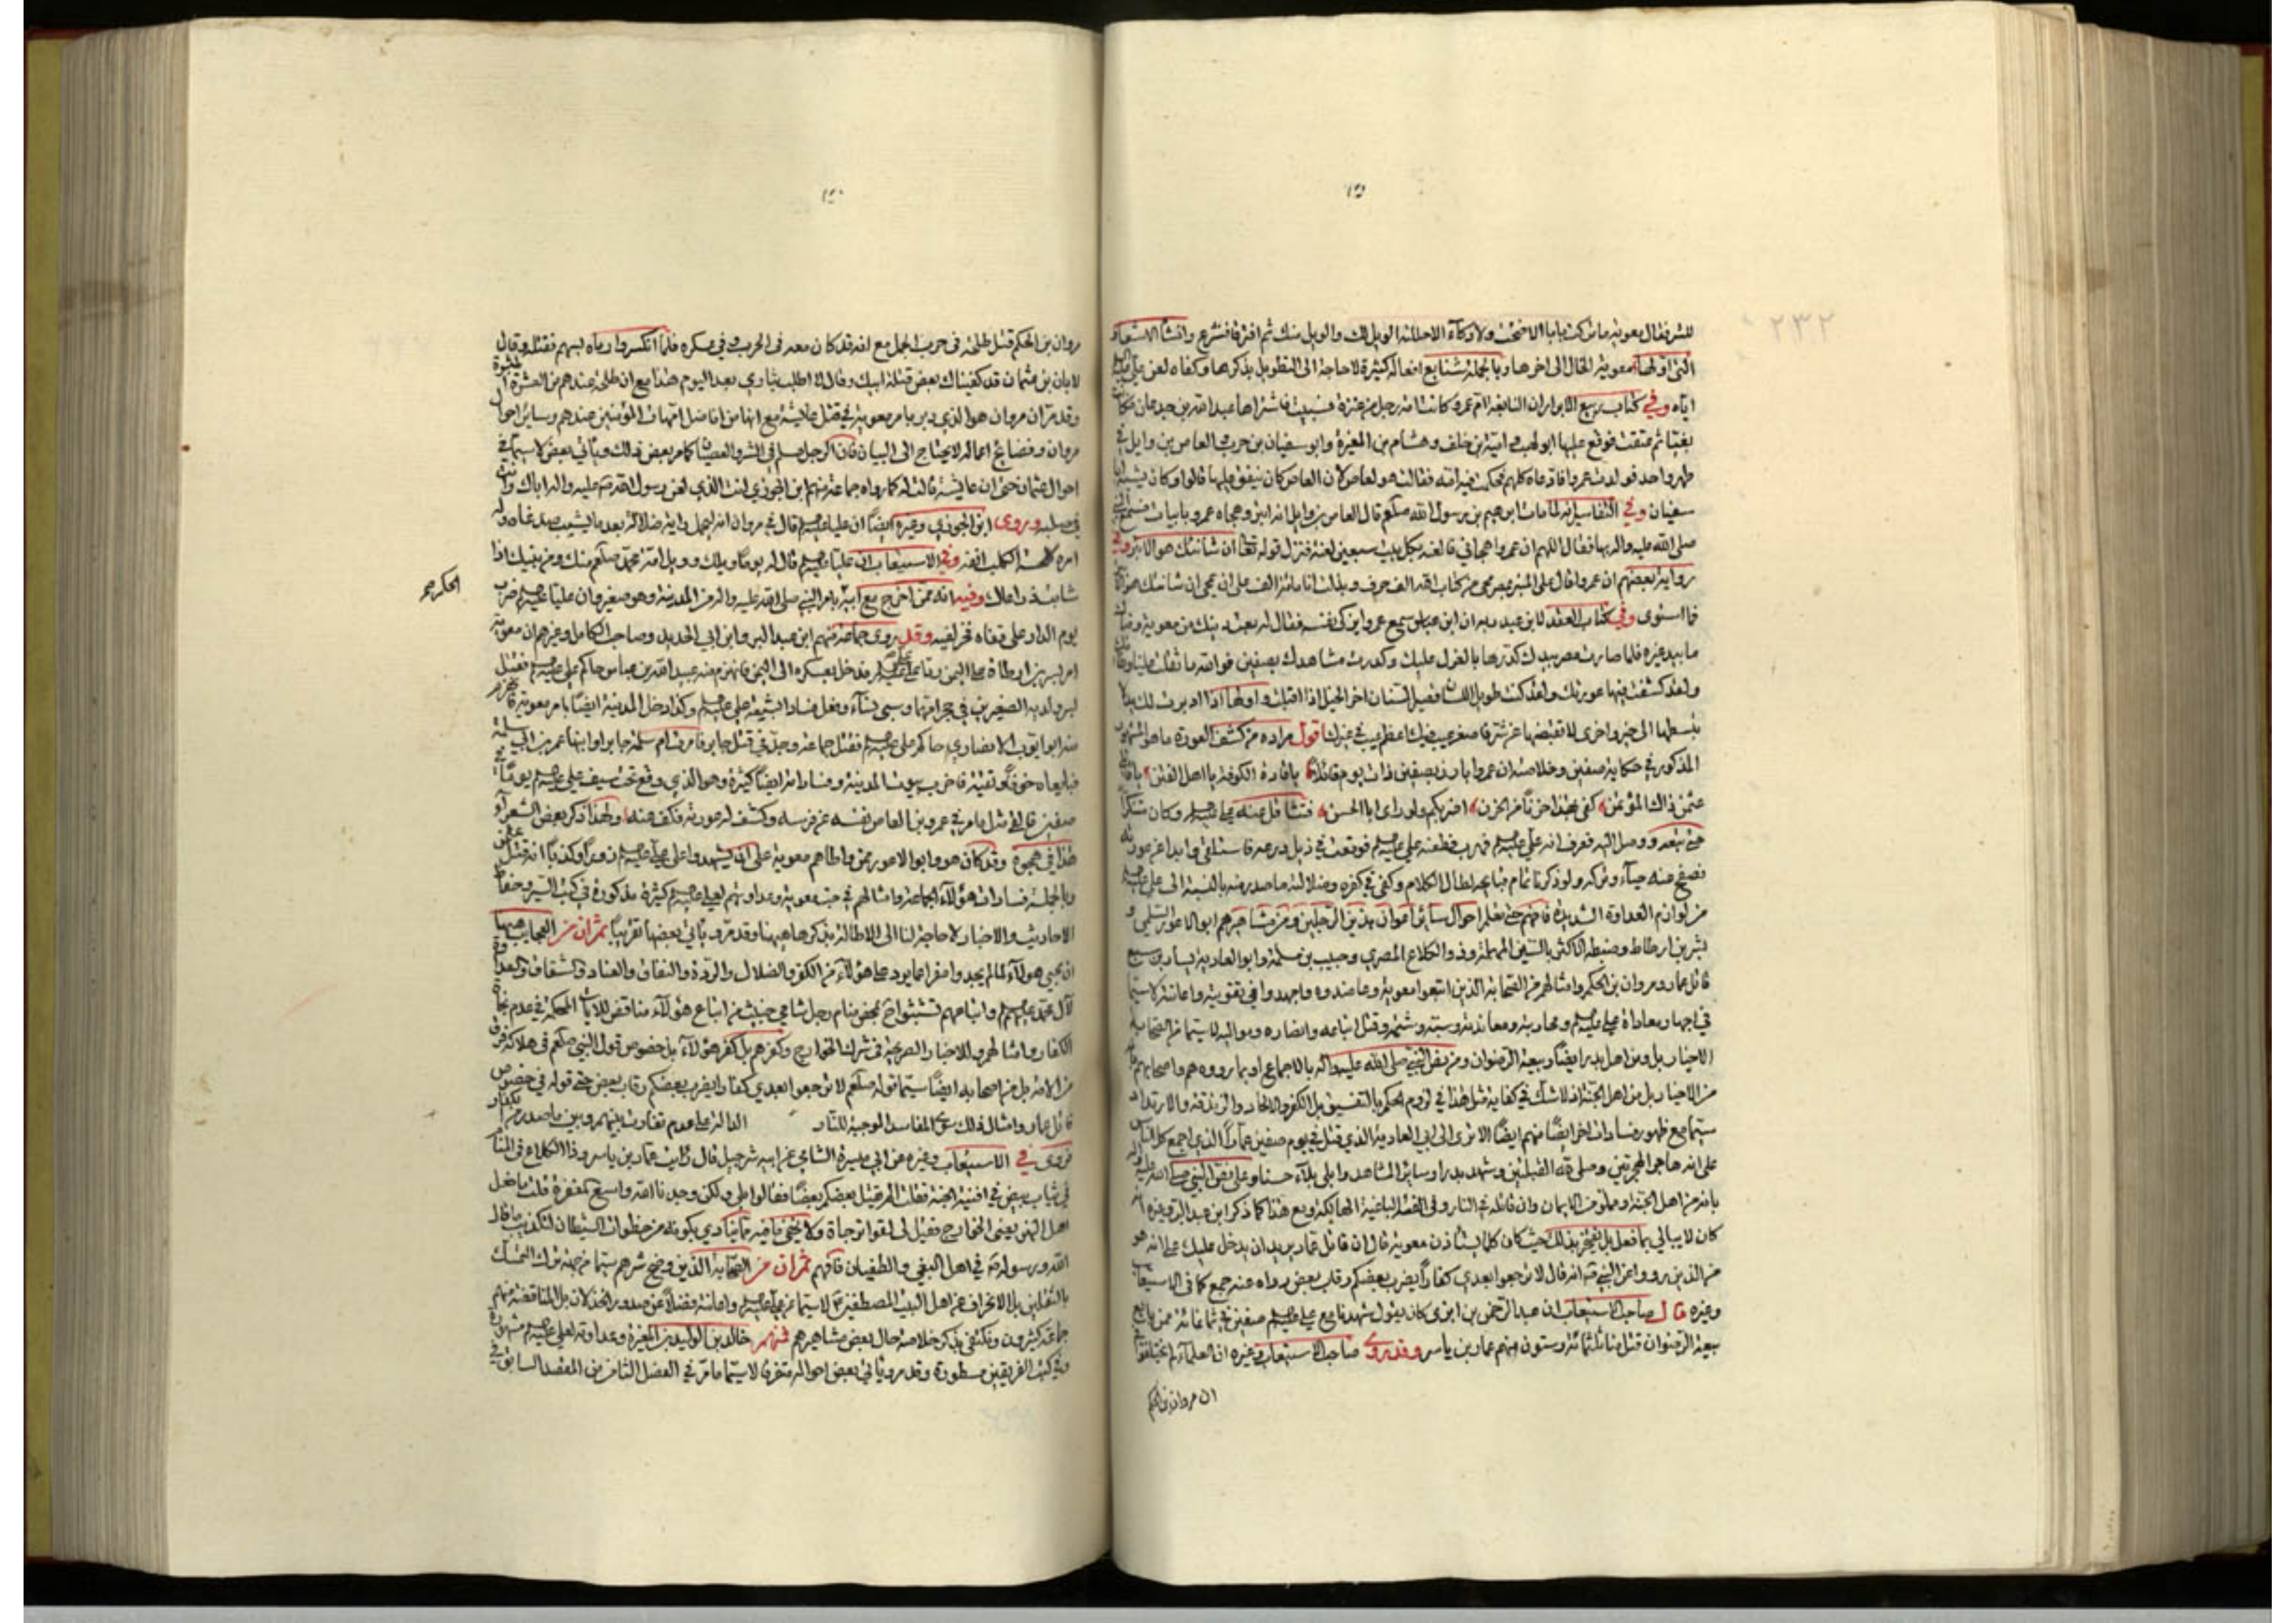 ٢٣٢
للشر فقال معوية ما تركت يا با الاخنث ولا وكاء الا حللته الويل لك والويل منك ثم افترقا فتشرع وانشأ الاشعار
التي اولها معوية الحال الى اخرها وبالجملة شنايع افعاله كثيرة لا حاجة الى التطويل بذكرها وكفاه لعن علي عليه السلام
اياه وفي كتاب ربيع الابرار ان النابغة ام عمرو كانت امة رجل من عنزة فسبيت فاشتراها عبدالله بن جدعان فكانت
بغيا ثم عتقت فوقع عليها ابولهب وامية بن خلف وهشام بن المغيرة وابوسفيان بن حرب والعاص بن وايل في
طهر واحد فولدت عمروا فادعاه كلهم فحكمت فيه امه فقالت هو لعاص لان العاص كان ينفق عليها قالوا وكان يشبه ابا
سفيان وفي التفاسير انه لما مات ابرهيم بن رسول الله صلعم قال العاص بن وايل انه ابتر وهجاه عمرو بابيات فسمع النبي
صلى الله عليه واله بها فقال اللهم ان عمروا هجاني فالعنه بكل بيت سبعين لعنة فنزل قوله تعا ان شانئك هو الابتر وفي
رواية بعضهم ان عمروا قال على المنبر بمصر محي من كتاب الله الف حرف وبذلت انا مائة الف على ان يمحى ان شانئك هو الابتر
فما استوى وفي كتاب العقد لابن عبد ربه ان ابن عباس سمع عمروا يزكي نفسه فقال له بعت دينك من معوية ومناك
ما بيد غيره فلما صارت مصر بيدك كدرها بالعزل عليك وكدرت مشاهدك بصفين فوالله ما ثقلت علينا وطأتك
ولقد كشفت فيها عورتك ولقد كنت طويل اللسان قصير السنان اخر الخيل اذا اقبلت واولها اذا ادبرت لك يد لا
تبسطها الى خير واخرى لا تقبضها عن شر فاصغر عيب فيك اعظم عيب في غيرك اقول مراده من كشف العورة ما هو المشهور
المذكور في حكاية صفين وخلاصته ان عمروا بارز بصفين ذات يوم قائلا يا قادة الكوفة يا اهل الفتن يا قاتلي
عثمن ذاك المؤتمن كفى بهذا حزنا من الحزن اضربكم ولو ارى ابا الحسن فتثاقل عنه علي عليه السلام وكان متنكرا
حتى تبعه ووصل اليه فعرف انه علي عليه السلام فهرب فطعنه علي عليه السلام فوقعت في ذيل درعه فاستلقى وابدا عن عورته
فصفح عنه حياء وتركه ولو ذكرنا تمام قبايحه لطال الكلام وكفى في كفره وضلالته ما صدر منه بالنسبة الى علي عليه السلام
من لوازم العداوة الشديدة فافهم حتى تعلم احوال سائر اعوان هذين الرجلين ومن مشاهيرهم ابو الاعور السلمي و
بشر بن ارطاط وضبطه الاكثر بالسين المهملة وذو الكلاع المصري وحبيب بن مسلمة وابو العادية يسار بن سبع
قاتل عمار ومروان بن الحكم وامثالهم من الصحابة الذين اتبعوا معوية وعاضدوه واجهدوا في تقويته واعانته لاسيما
في اجهار معاداة علي عليه السلام ومحاربته ومعاندته وسبه وشتمه وقتل اتباعه وانصاره ومواليه لاسيما من الصحابة
الاخيار بل ومن اهل بدر ايضا وبيعة الرضوان ومن بنص النبي صلى الله عليه واله بالاجماع او بما رووه هم واصحابهم
من الاخيار بل من اهل الجنة اذ لا شك في كفاية مثل هذا في لزوم الحكم بالتفسيق بل الكفر والالحاد والزندقة والارتداد
سيما مع ظهور فسادات اخر ايضا منهم ايضا الا ترى الى ابي العادية الذي قتل في يوم صفين عمارا الذي اجمع كل الناس
على انه هاجر الهجرتين وصلى القبلتين وشهد بدرا وسائر المشاهد وابلى بلاء حسنا وعلى نص النبي صلى الله عليه واله
بانه من اهل الجنة ومملو من الايمان وان قاتله في النار وفي الفئة الباغية الهالكة ومع هذا كما ذكر ابن عبدالبر وغيره
كان لا يبالي بما فعل بل يفتخر بذلك حيث كان كلما يستأذن معوية قال ان قاتل عمار يريد ان يدخل عليك على انه هو
من الذين رووا عن النبي انه قال لا ترجعوا بعدي كفارا يضرب بعضكم رقاب بعض رواه عنه جمع كما في الاستيعاب
وغيره قال صاحب الاستيعاب ان عبدالرحمن بن ابزى كان يقول شهدنا مع علي عليه السلام صفين في ثمانمائة ممن بايع
بيعة الرضوان قتل منا ثلثمائة وستون منهم عمار بن ياسر وقد روى صاحب الاستيعاب وغيره ان العلماء لم يختلفوا في
ان مروان بن الحكم
مروان بن الحكم قتل طلحة في حرب الجمل مع انه قد كان معه في الحرب وفي عسكره فلما انكسروا رماه بسهم فقتله وقال
لابان بن عثمان قد كفيناك بعض قتلة ابيك وقال لا اطلب بثاري بعد اليوم هذا مع ان طلحة عندهم من العشرة المبشرة
وقد مر ان مروان هو الذي دبر بامر معوية في قتل عايشة مع انها من افاضل امهات المؤمنين عندهم وساير احوال
مروان وفضايع اعماله لا يحتاج الى البيان فان الرجل علم في الشر والعصيان كما مر بعض ذلك ويأتي بعض لاسيما في
احوال عثمان حتى ان عايشة قالت له كما رواه جماعة منهم ابن الجوزي انت الذي لعن رسول الله صلى الله عليه واله اباك وانت
في صلبه وروى ابن الجوزي وغيره ايضا ان عليا عليه السلام قال في مروان انه ليحمل راية ضلالة بعد ما يشيب صدغاه وله
امرة كلحسة الكلب انفه وفي الاستيعاب ان عليا عليه السلام قال له يوما ويلك وويل امة محمد صلعم منك ومن بنيك اذا
شابت ذراعاك وفيه انه ممن اخرج مع ابيه بامر النبي صلى الله عليه واله من المدينة وهو صغير وان عليا عليه السلام ضرب
الحكم صح
يوم الدار على قفاه فخر لفيه وقد روى جماعة منهم ابن عبدالبر وابن ابي الحديد وصاحب الكامل وغيرهم ان معوية
امر بسر بن ارطاة على اليمن رغما لعلي عليه السلام فدخل بعسكره الى اليمن فانهزم منه عبيدالله بن عباس حاكم علي عليه السلام فقتل
بسر ولديه الصغيرين في حجر امهما وسبى نساء وفعل فسادا بشيعة علي عليه السلام وكذا دخل المدينة ايضا بامر معوية فانهزم
منه ابو ايوب الانصاري حاكم علي عليه السلام فقتل جماعة وجد في قتل جابر فامرت ام سلمة جابرا وابنها عمر بن ابي سلمة
فبايعاه خوفا وتقية فاخرب بيوت المدينة وفساداته ايضا كثيرة وهو الذي وقع تحت سيف علي عليه السلام يوما في
صفين فالقى مثل ما مر في عمرو بن العاص نفسه عن فرسه وكشف له عورته فكف عنه ولهذا ذكر بعض الشعراء
هذا في هجوه وقد كان هو وابو الاعور ممن واطاهم معوية على ان يشهدوا على علي عليه السلام زورا وكذبا انه قتل عثمن
وبالجملة فسادات هؤلاء الجماعة وامثالهم في حب معوية وعداوتهم لعلي عليه السلام كثيرة مذكورة في كتب السير وحفاظ
الاحاديث والاخبار لا حاجة لنا الى الاطالة بذكرها هيهنا وقد مر ويأتي بعضها تقريبا ثم ان من العجايب هيهنا
ان محبي هؤلاء لما لم يجدوا مفرا عما يرد على هؤلاء من الكفر والضلال والردة والنفاق والعناد والشقاق والعداوة
لآل محمد عليهم السلام واتباعهم تشبثوا في بمحض منام رجل شامي خبيث من اتباع هؤلاء مناقض للايات المحكمة في عدم نجاة
الكفار وامثالهم وللاخبار الصريحة في شرك الخوارج وكفرهم بل كفر هؤلاء بل خصوص قول النبي صلعم في هلاكة فرق
من الامة بل من اصحابه ايضا سيما قوله صلعم لا ترجعوا بعدي كفارا يضرب بعضكم رقاب بعض حتى قوله في خصوص
قاتل عمار وامثال ذلك من المفاسد الموجبة للنار الدالة على عدم تفاوت بينهم وبين ما صدر من
فروى في الاستيعاب وغيره عن ابي ميسرة الشامي عن ابيه شرحبيل قال رايت عمار بن ياسر وذا الكلاع في المنام
في ثياب بيض في افنية الجنة فقلت الم يقتل بعضكم بعضا فقالوا بلى ولكن وجدنا الله واسع المغفرة قلت ما فعل
اهل النهر يعني الخوارج فقيل لي لقوا ترحا ولا يخفى ما فيه مما ينادي بكونه من خطوات الشيطان لتكذيب ما قال
الله ورسوله في اهل البغي والطغيان فافهم ثم ان من الصحابة الذين وضح شرهم سيما من جهة ترك التمسك
بالثقلين بل الانحراف عن اهل البيت المصطفين لاسيما عن علي عليه السلام واعانته فضلا عن صدور الخذلان بل المناقضة منهم
جماعة كثيرون ونكتفي بذكر خلاصة حال بعض مشاهيرهم فمنهم خالد بن الوليد بن المغيرة وعداوته لعلي عليه السلام مشهورة
وفي كتب الفريقين مسطورة وقد مر ويأتي بعض احواله متفرقا لاسيما ما مر في الفصل الثامن من المقصد السابق في